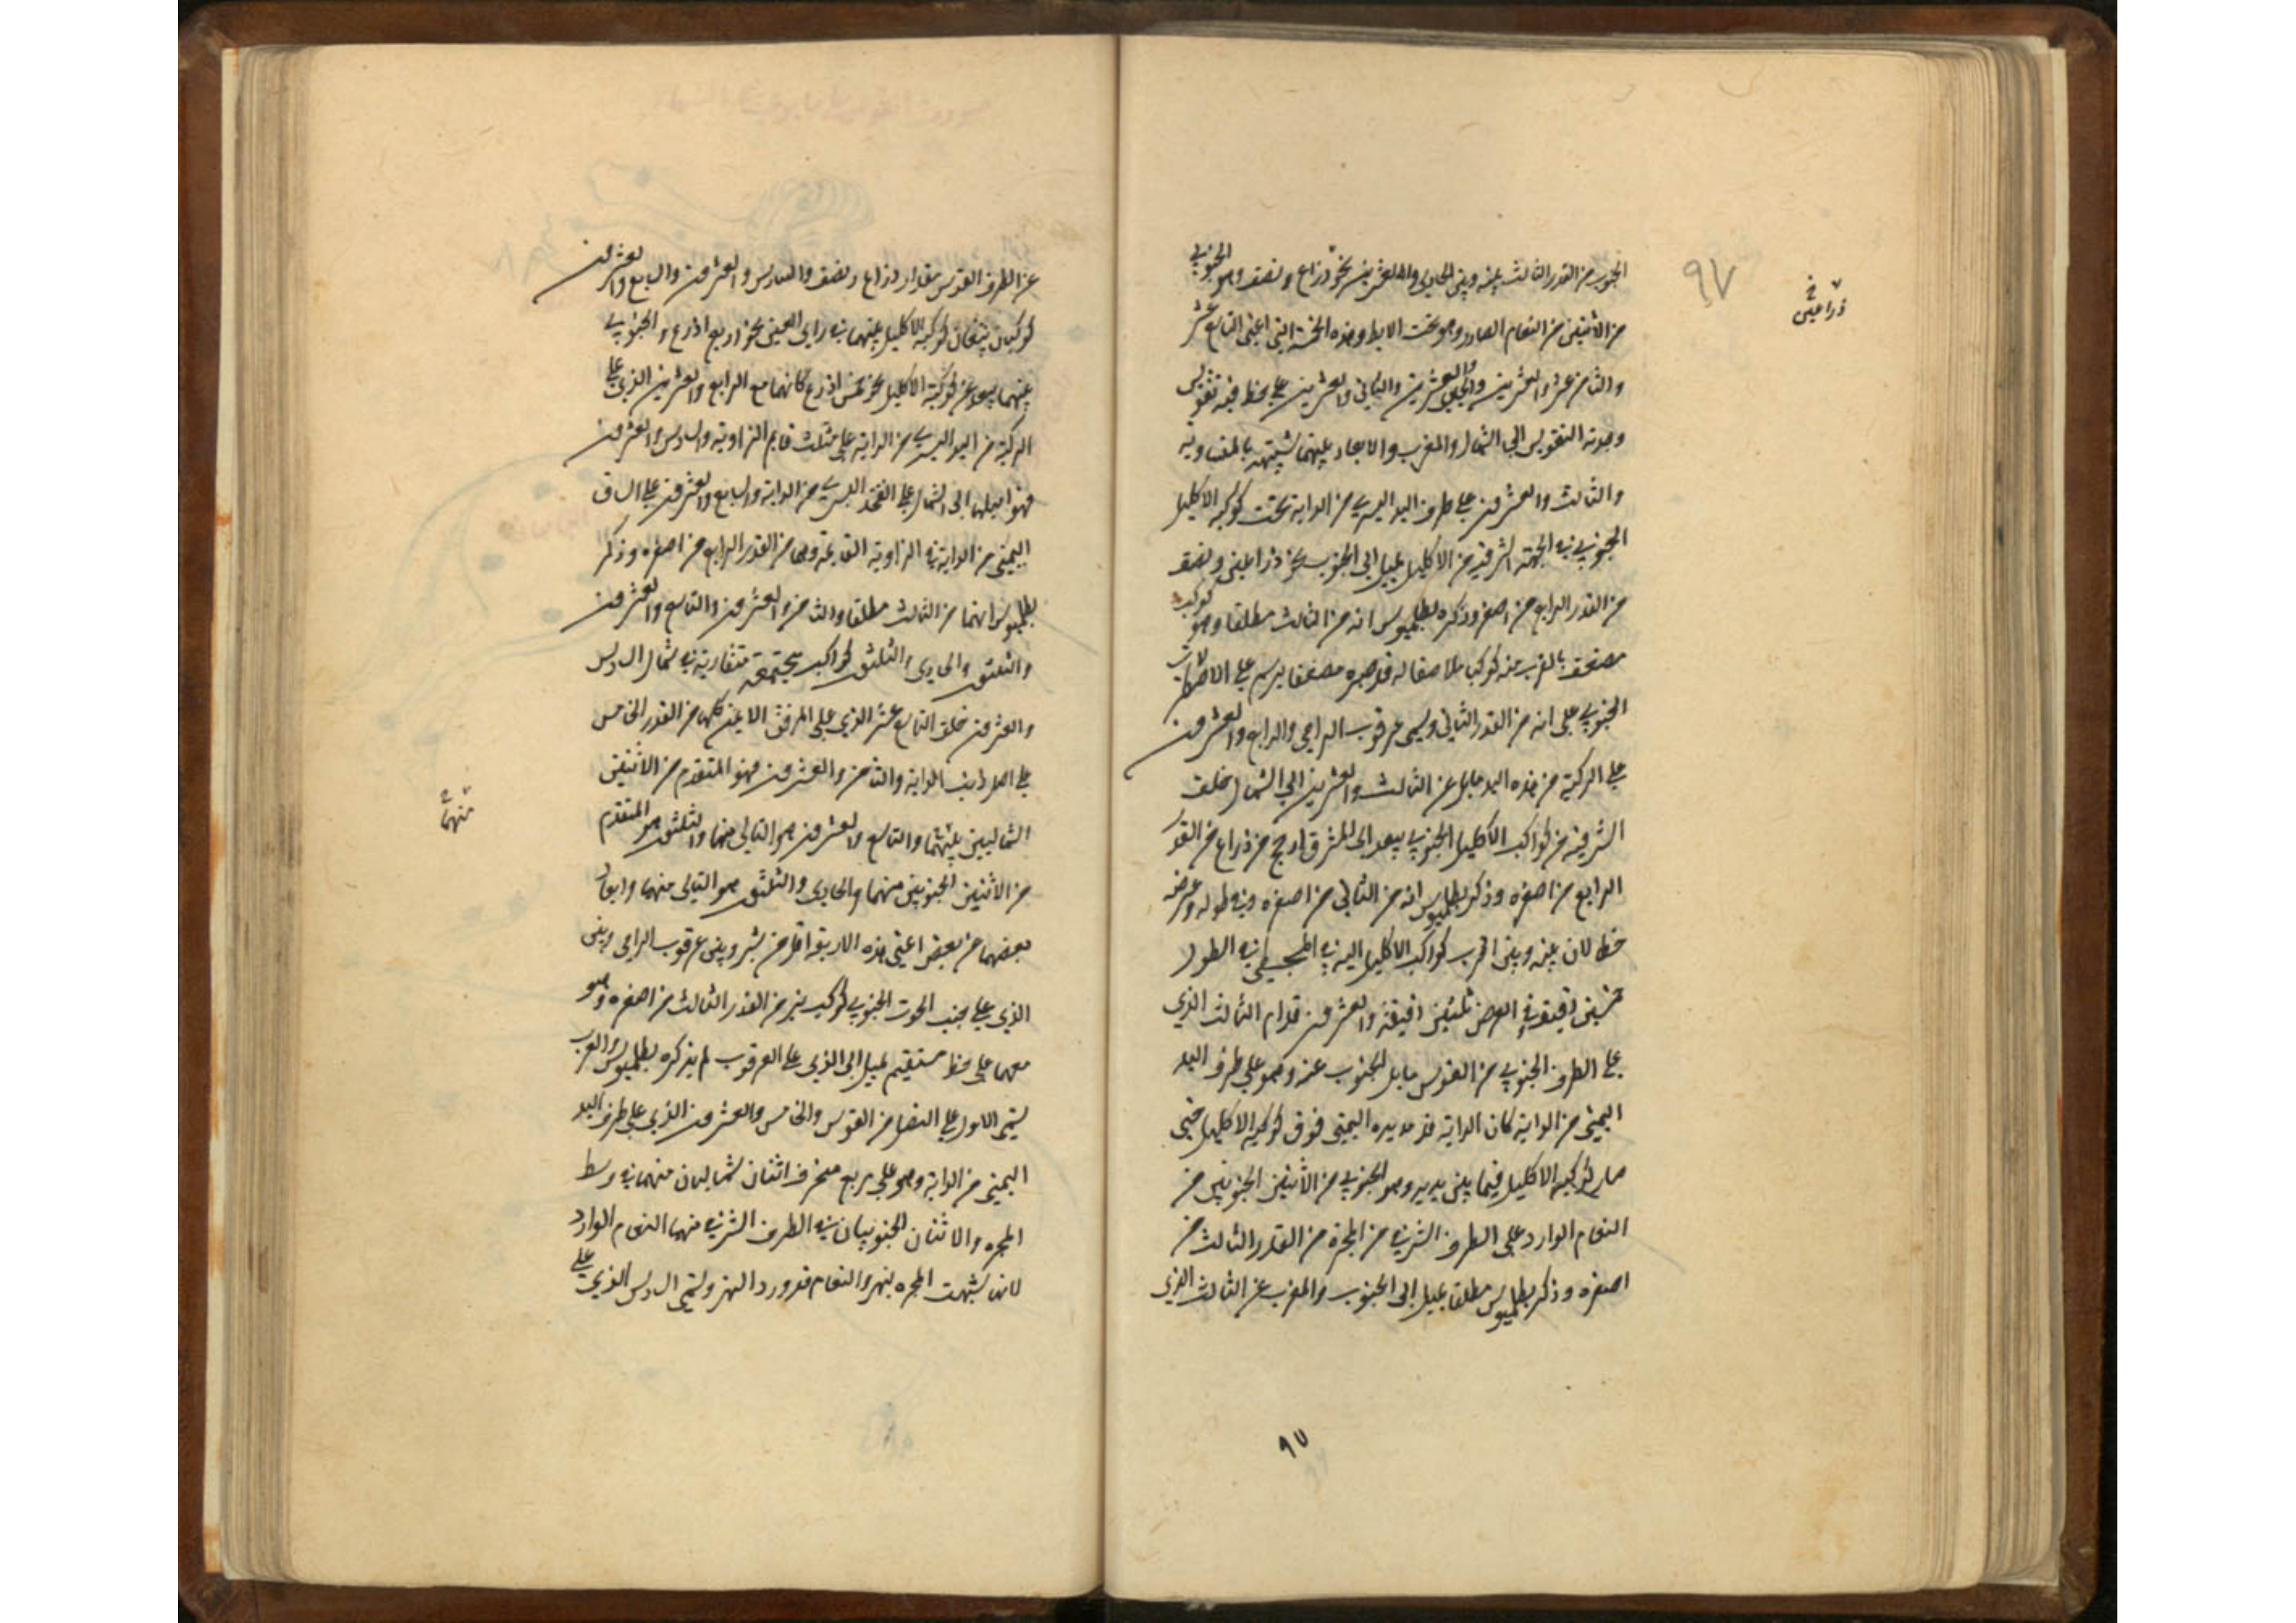 الجنوب من القدر الثالث بينه وبين الحادي والعشرين نحو ذراع ونصف وهو الجنوبي
من الاثنين من النعام الصادر وهو تحت الابط وهذه الخمسة التي اعني التاسع عشر
والثامن عشر والعشرين والحادي والعشرين والثاني والعشرين على خط فيه تقويس
وجدته التقويس الى الشمال والمغرب والابعاد بينهما شبيهة بالمتساوية
والثالث والعشرون على طرف اليد اليسرى من الدابة تحت كوكبة الاكليل
الجنوبي في الجهة الشرقية من الاكليل يميل الى الجنوب نحو ذراعين ونصف
من القدر الرابع من اصغره وذكره بطلميوس انه من الثالث مطلقا وهو كوكب
مضعف بالقرب منه كوكب ملاصقا له قد صيره مضعفا يرسم على الاصطرلاب
الجنوبي على انه من القدر الثاني ويسمى عرقوب الرامي والرابع والعشرون
على الركبة من هذه اليد مايل عن الثالث والعشرين الى الشمال خلف
الشرقية من كواكب الاكليل الجنوبي يبعد الى المشرق ارجح من ذراع من القدر
الرابع من اصغره وذكر بطلميوس انه من الثاني من اصغره وفي طوله وعرضه
خطا لان بينه وبين اقرب كواكب الاكليل اليه في المجسطي في الطول
خمسين دقيقة وفي العرض ثلثين دقيقة والعشرون قدام الثالث الذي
على الطرف الجنوبي من القوس مايل الجنوب عنه وهو على طرف اليد
اليمنى من الدابة كان الدابة قد مد يده اليمنى فوق كوكبة الاكليل حتى
صار كوكبة الاكليل فيما بين يديه وهو الجنوبي من الاثنين الجنوبيين من
النعام الوارد على الطرف الشرقي من المجرة من القدر الثالث من
اصغره وذكر بطلميوس مطلقا يميل الى الجنوب والمغرب عن الثالث الذي
ذراعين
٩٧
٩٧
عن الطرف القوس بمقدار ذراع ونصف والسادس والعشرون والسابع والعشرون
كوكبان يتبعان كوكبة الاكليل بينهما في راي العين نحو اربع اذرع والجنوبي
منهما يبعد عن كوكبة الاكليل نحو خمس اذرع كانهما مع الرابع والعشرين الذي على
الركبة من اليد اليسرى من الدابة على مثلث قايم الزاوية والسادس والعشرون
فهو اميلهما الى الشمال على الفخذ اليسرى من الدابة والسابع والعشرون على الساق
اليمنى من الدابة في الزاوية القايمة وهما من القدر الرابع من اصغره وذكر
بطلميوس انهما من الثالث مطلقا والثامن والعشرون والتاسع والعشرون
والثلثون والحادي والثلثون كواكب مجتمعة متقاربة في شمال السادس
والعشرون خلف التاسع عشر الذي على المرفق الايمن كلها من القدر الخامس
على اصل ذنب الدابة والثامن والعشرون فهو المتقدم من الاثنين
الشماليين منهما والتاسع والعشرون هو التالي منهما والثلثون هو المتقدم
من الاثنين الجنوبيين منهما والحادي والثلثون هو التالي منهما وابعاد
بعضهما من بعض اعني هذه الاربعة اقل من شبر وبين عرقوب الرامي وبين
الذي على جنب الحوت الجنوبي كوكب نير من القدر الثالث من اصغره وهو
معهما على خط مستقيم يميل الى الذي على العرقوب لم يذكره بطلميوس والعرب
يسمي الاول على النصل من القوس والخامس والعشرون الذي على طرف اليد
اليمنى من الدابة وهو على مربع منحرف اثنان شماليان منهما في وسط
المجره والاثنان الجنوبيان في الطرف الشرقي منهما النعام الوارد
لان شبهت المجره بنهر والنعام قد ورد النهر ويسمي السادس الذي على
منهما